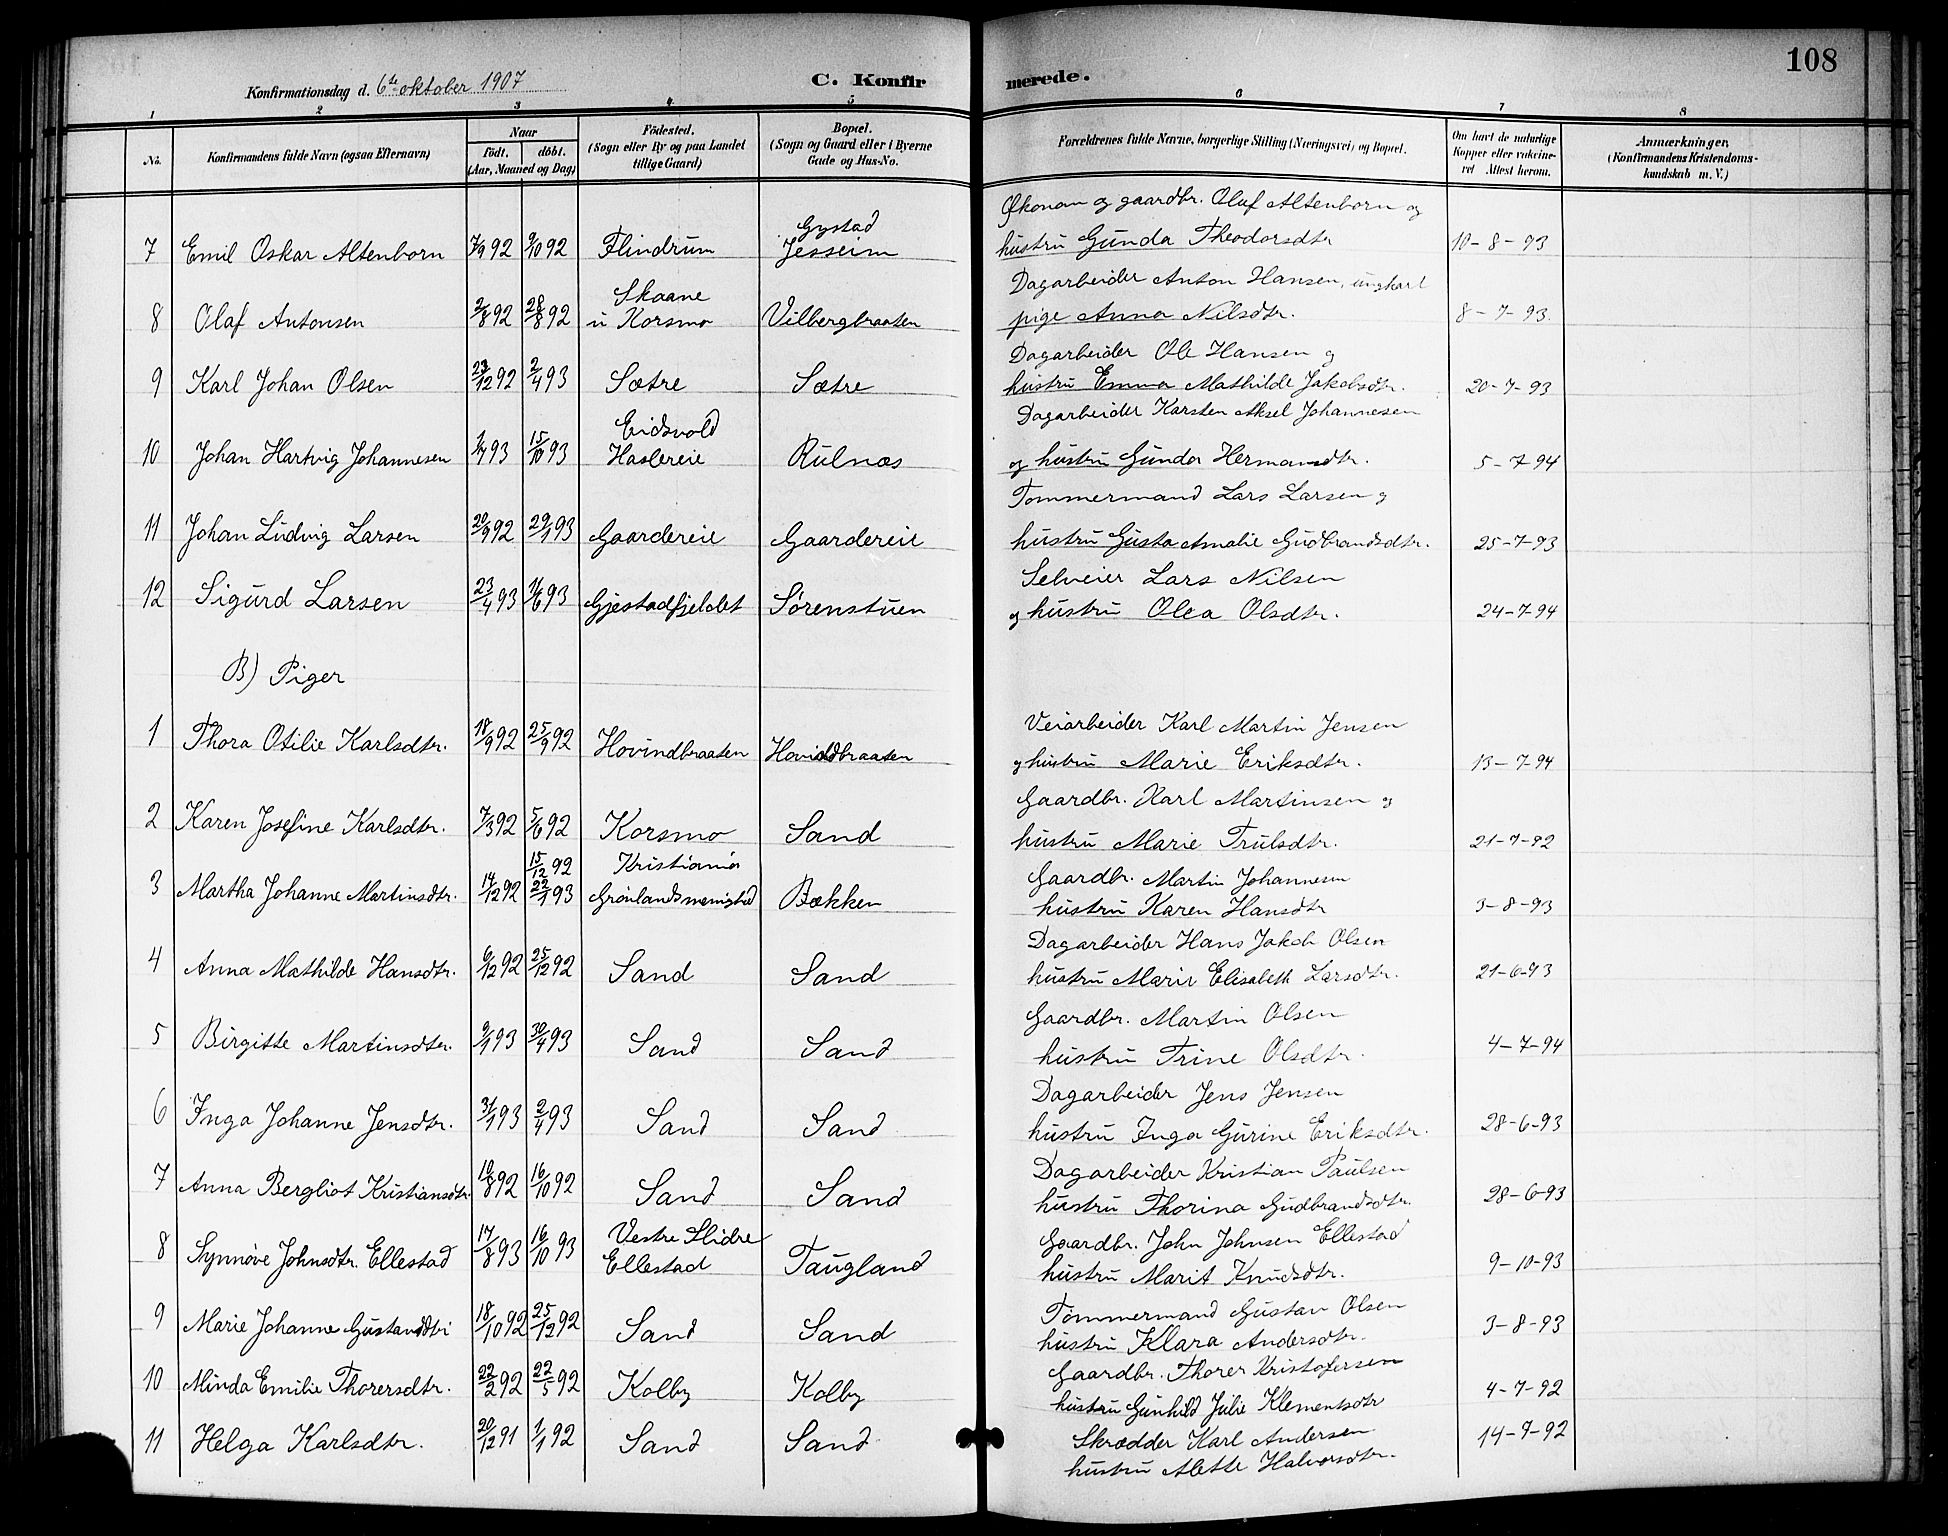 108
Konfirmationsdag d. 6te oktober 1907
C. Konfirmerede.
1 2 3 4 5 6 7 8
No.
Konfirmandens fulde Navn (ogsaa Efternavn)
Naar
födt. döbt.
(Aar, Maaned og Dag)
Födested.
(Sogn eller By og paa Landet
tillige Gaard)
Bopæl.
(Sogn og Gaard eller i Byerne
Gade og Hus-No.
Forældrenes fulde Navne, borgerlige Stilling (Næringsvei) og Bopæl.
Om havt de naturlige
Kopper eller vakcine-
ret Attest herom.
Anmærkninger.
(Konfirmandens Kristendoms-
kundskab m. V.)
Gystad Økonom og gaardbr. Oluf Altenborn og
7 Emil Oskar Altenborn 7/9 92 9/10 92 Flindrum Jesseim hustru Gunda Theodorsdtr 10-8-93
Skaane Dagarbeider Anton Hansen, ungkarl
8 Olaf Antonsen 2/8 92 28/8 92 u Korsmo Vilbergbraaten pige Anna Nilsdtr. 8-7-93.
Dagarbeider Ole Hansen og
9 Karl Johan Olsen 23/12 92 2/4 93 Sætre Sætre hustru Emma Mathilde Jakobsdtr. 20-7-93
Eidsvold Dagarbeider Karsten Aksel Johannesen
10 Johan Hartvig Johannesen 1/7 93 15/10 93 Haslereie Rulnæs og hustru Gunda Hermansdtr. 5-7-94
Tømmermand Lars Larsen og
11 Johan Ludvig Larsen 20/9 92 29/1 93 Gaardereie Gaardereie hustru Gusta Amalie Gudbrandsdtr. 25-7-93
Selveier Lars Nilsen
12 Sigurd Larsen 23/4 93 11/6 93 Gjestadfjeldet Sørenstuen og hustru Olea Olsdtr. 24-7-94
B) Piger
Veiarbeider Karl Martin Jensen
1 Thora Otilie Karlsdtr. 18/9 92 25/9 92 Hovindbraaten Hovindbraaten og hustru Marie Eriksdtr. 13-7-94
Gaardbr. Karl Martinsen og
2 Karen Josefine Karlsdtr. 7/3 92 5/6 92 Korsmo Sand hustru Marie Trulsdtr. 21-7-92
15/12 92 Kristiania Gaardbr. Martin Johannesen
3 Martha Johanne Martinsdtr. 14/12 92 22/1 93 Grønlandsmenighed Bækken hustru Karen Hansdtr 3-8-93
Dagarbeider Hans Jakob Olsen
4 Anna Mathilde Hansdtr. 6/12 92 25/12 92 Sand Sand hustru Marie Elisabeth Larsdtr. 21-6-93
Gaardbr. Martin Olsen
5 Birgitte Martinsdtr. 9/1 93 30/4 93 Sand Sand hustru Trine Olsdtr. 4-7-94
Dagarbeider Jens Jensen
6 Inga Johanne Jensdtr. 31/1 93 2/4 93 Sand Sand hustru Inga Gurine Eriksdtr. 28-6-93
Dagarbeider Kristian Paulsen
7 Anna Bergliot Kristiansdtr. 10/8 92 16/10 92 Sand Sand hustru Thorina Gudbrandsdtr. 28-6-93
Vestre Slidre Gaardbr. John Johnsen Ellestad
8 Synnøve Johnsdtr. Ellestad 17/8 93 16/10 93 Ellestad Taugland hustru Marit Knudsdtr. 9-10-93
Tømmermand Gustav Olsen
9 Marie Johanne Gustavsdtr 18/10 92 25/12 92 Sand Sand hustru Klara Andersdtr. 3-8-93
Gaardbr. Thorer Kristofersen
10 Minda Emilie Thorersdtr. 22/2 92 22/5 92 Kolby Kolby hustru Gunhild Julie Klementsdtr 4-7-92
Skrædder Karl Andersen
11 Helga Karlsdtr. 20/12 91 1/1 92 Sand Sand hustru Alette Halvorsdtr. 14-7-92